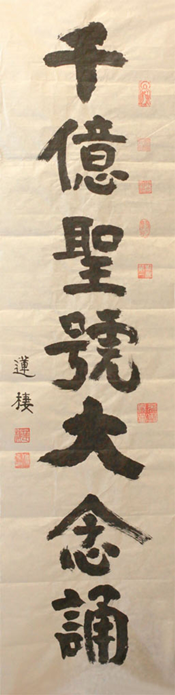 千億聖號大念誦
蓮棲